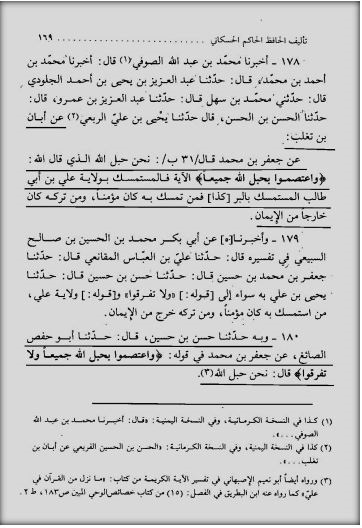 تأليف الحافظ الحاكم الحسكاني ........................ ١٦٩
١٧٨ ـ أخبرنا محمّد بن عبد الله الصوفي(١) قال: أخبرنا محمّد بن
أحمد بن محمّد، قال: حدّثنا عبد العزيز بن يحيى بن أحمد الجلودي
قال: حدّثني محمّد بن سهل قال: حدّثنا عبد العزيز بن عمرو، قال:
حدّثنا الحسن بن الحسن، قال حدّثنا يحْيى بن عليّ الربعي(٢) عن أبان
بن تغلب:
عن جعفر بن محمد قال/٣١ ب/: نحن حبل الله الذي قال الله:
﴿واعتصموا بحبل الله جميعاً﴾ الآية فالمستمسك بولاية علي بن أبي
طالب المستمسك بالبر [كذا] فمن تمسك به كان مؤمناً، ومن تركه كان
خارجاً من الإيمان.
١٧٩ ـ وأخبرنا[ه] عن أبي بكر محمد بن الحسين بن صالح
السبيعي في تفسيره قال: حدّثنا عليّ بن العبّاس المقانعي قال: حدّثنا
جعفر بن محمد بن حسين قال: حدّثنا حسن بن حسين قال: حدّثنا
يحيى بن علي به سواء إلى [قوله:] «ولا تفرقوا» و[قوله:] ولاية علي،
من استمسك به كان مؤمناً، ومن تركه خرج من الإيمان.
١٨٠ ـ وبه حدّثنا حسن بن حسين، قال: حدّثنا أبو حفص
الصائغ، عن جعفر بن محمد في قوله: ﴿واعتصموا بحبل الله جميعاً ولا
تفرقوا﴾ قال: نحن حبل الله(٣).
(١) كذا في النسخة الكرمانية، وفي النسخة اليمنية: «وقال: أخبرنا محمد بن عبد الله
الصوفي ...».
(٢) كذا في النسخة اليمنية، وفي النسخة الكرمانية: «الحسن بن الحسين القريعي عن أبان بن
تغلب...».
(٣) ورواه أيضاً أبو نعيم الإصبهاني في تفسير الآية الكريمة من كتاب: «ما نزل من القرآن في
عليّ» كما رواه عنه ابن البطريق في الفصل: (١٥) من كتاب خصائص الوحي المبين ص١٨٣، ط ٢.